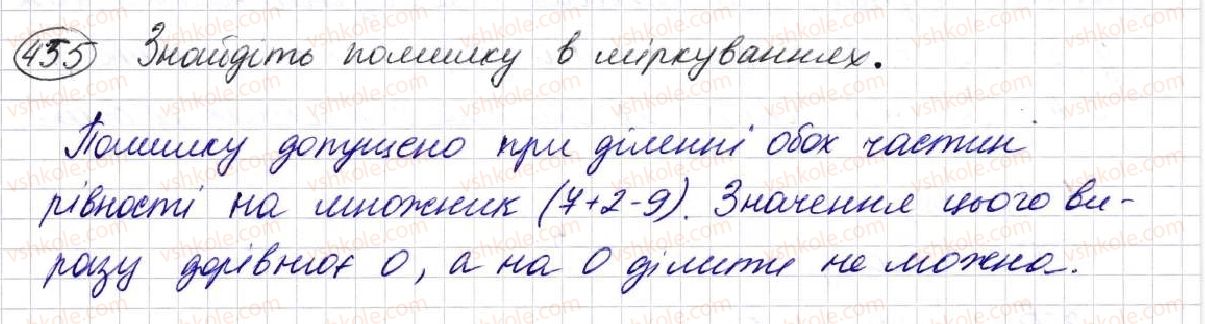 455 Знайдіть помилку в міркуваннях.
Помилку допущено при діленні обох частин
рівності на множник (7+2-9). Значення цього ви-
разу дорівнює 0, а на 0 ділити не можна.